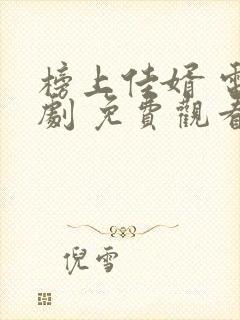 榜上佳婿 電
劇 免費觀看
倪雪